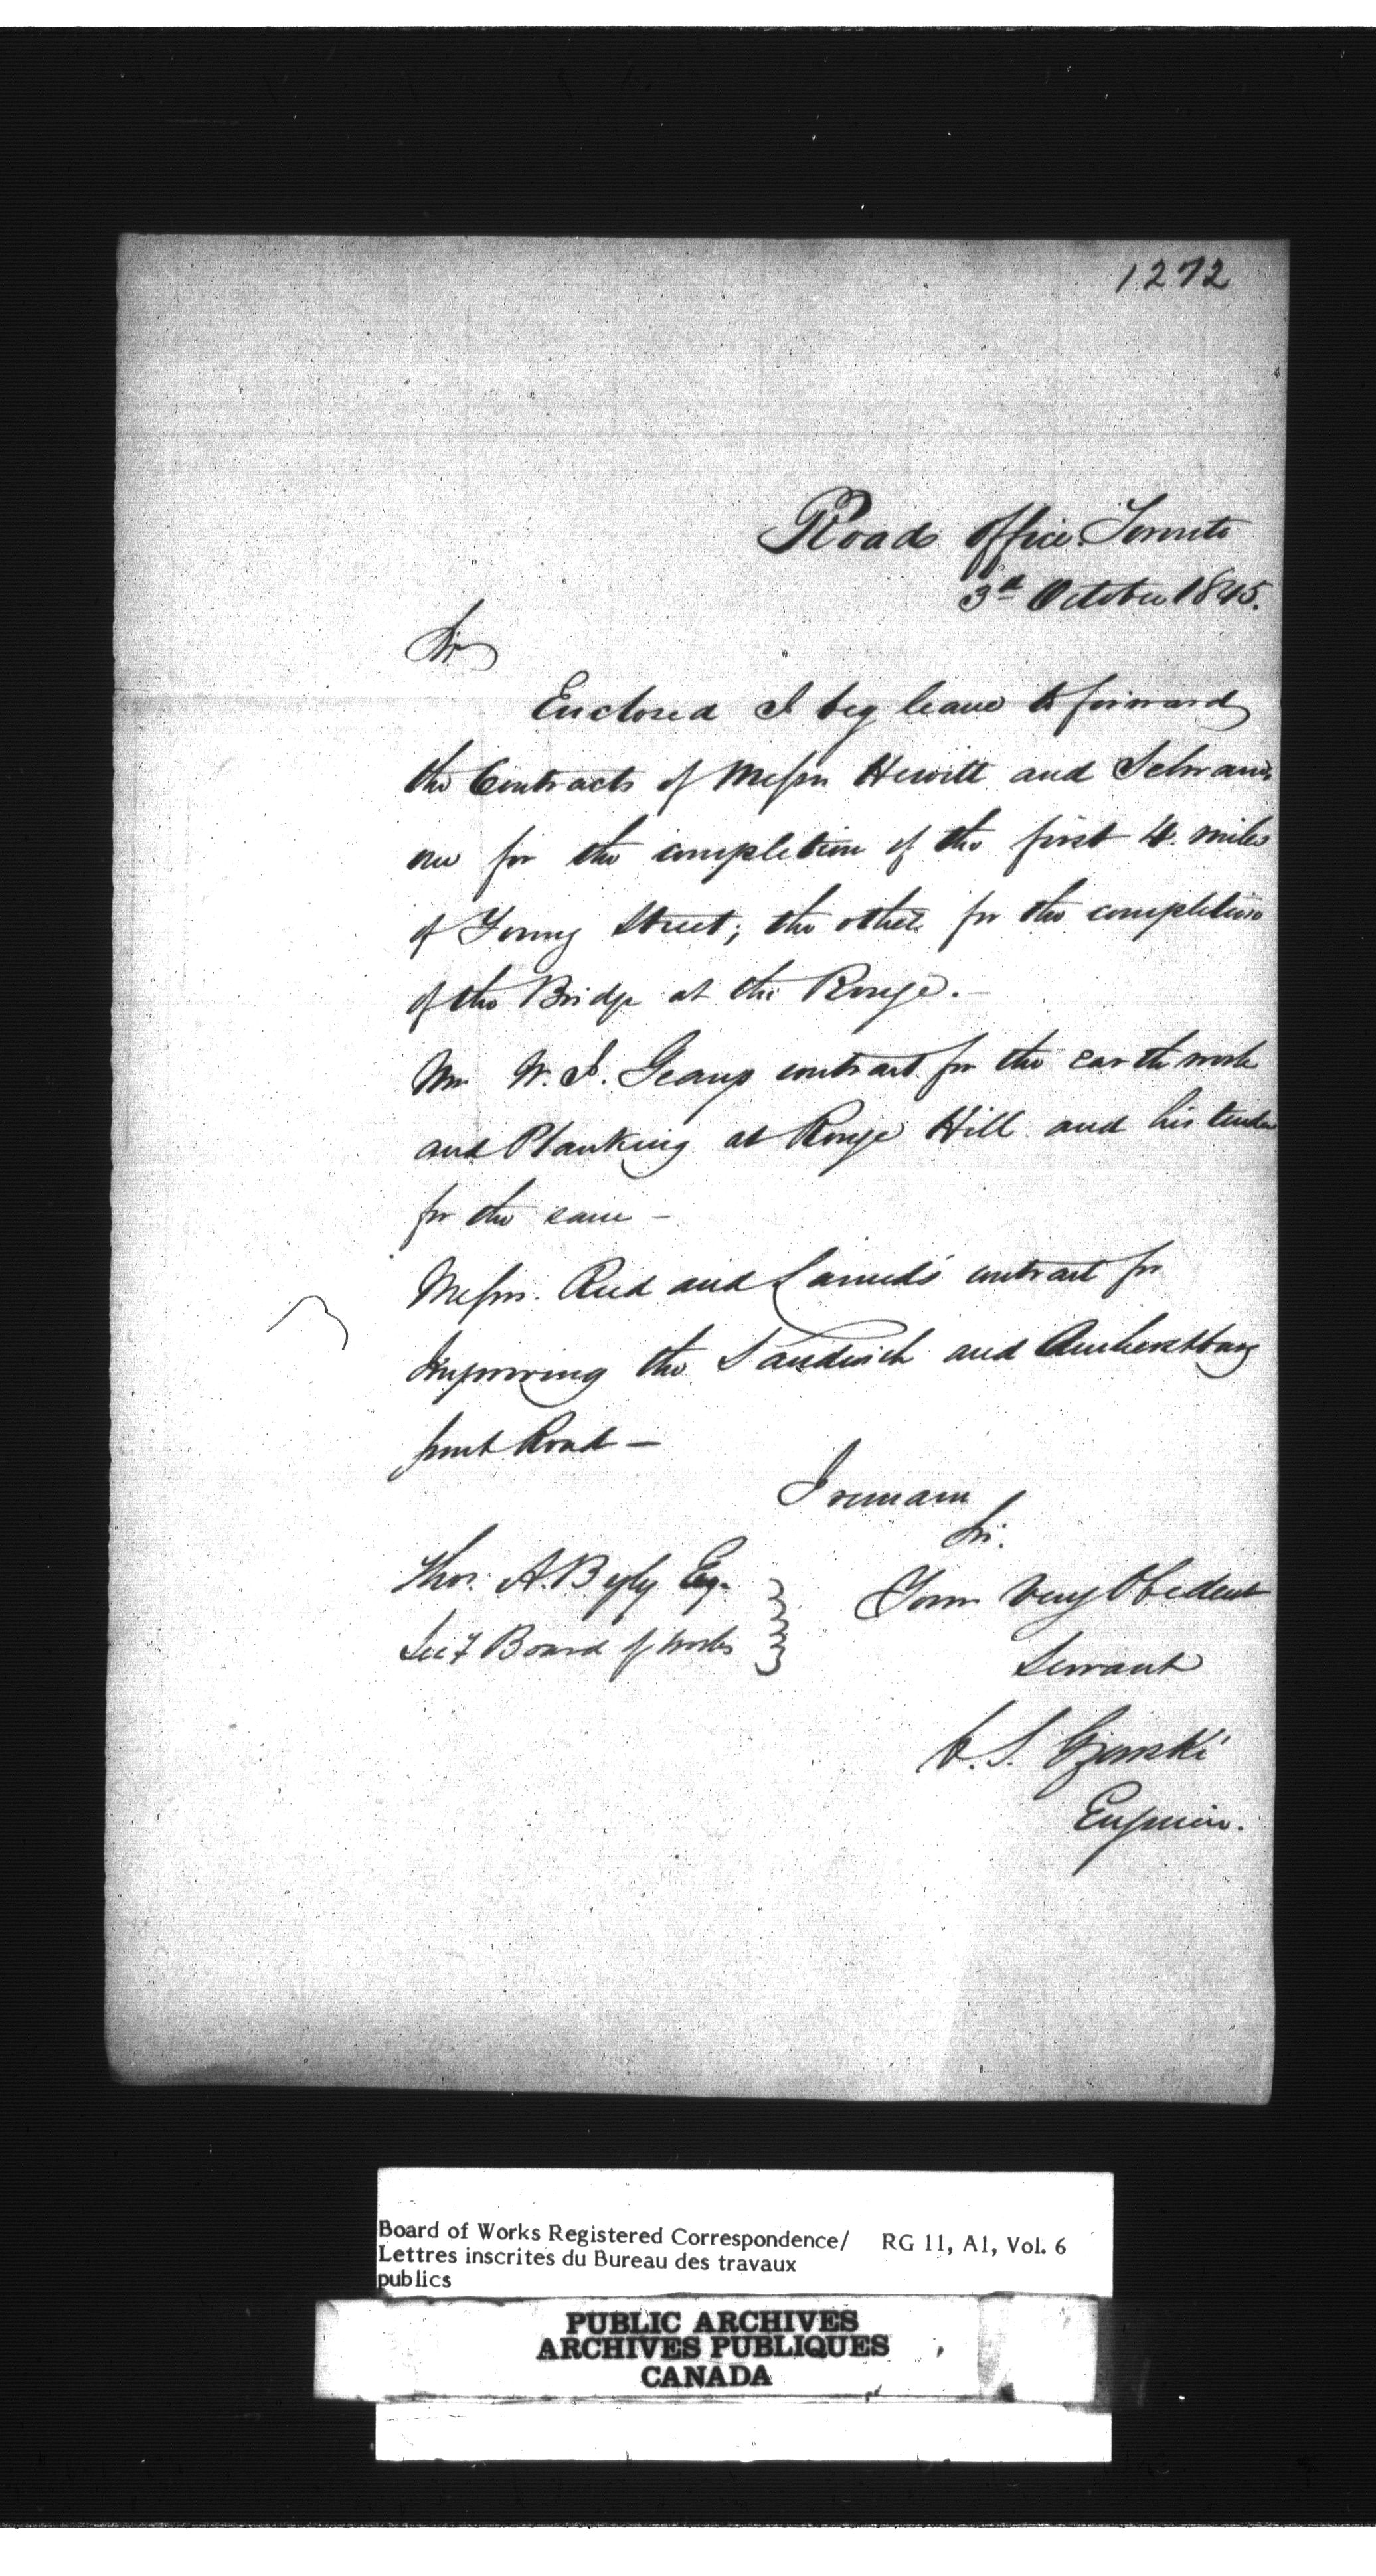 1272
Roads Office Toronto
3d October 1845.
Sir
Enclosed I beg leave to forward
the Contracts of Messrs Hewitt and
one for the completion of the first 4. miles
of Yonge Street; the other for the completion
of the Bridge at the Rouge. —
Mr W. J. contract for the earthwork
and Planking at Rouge Hill and his tender
for the same —
Messrs. Reed and contract for
Improving the Sandwich and Amherstburg
front Road —
I remain
Sir.
Your Very Obedient
Servant
C. S. Gzowski
Engineer.
Thos. A. Begly Esq.
Secy Board of Works
Board of Works Registered Correspondence/ RG 11, A1, Vol. 6
Lettres inscrites du Bureau des travaux
publics
PUBLIC ARCHIVES
ARCHIVES PUBLIQUES
CANADA